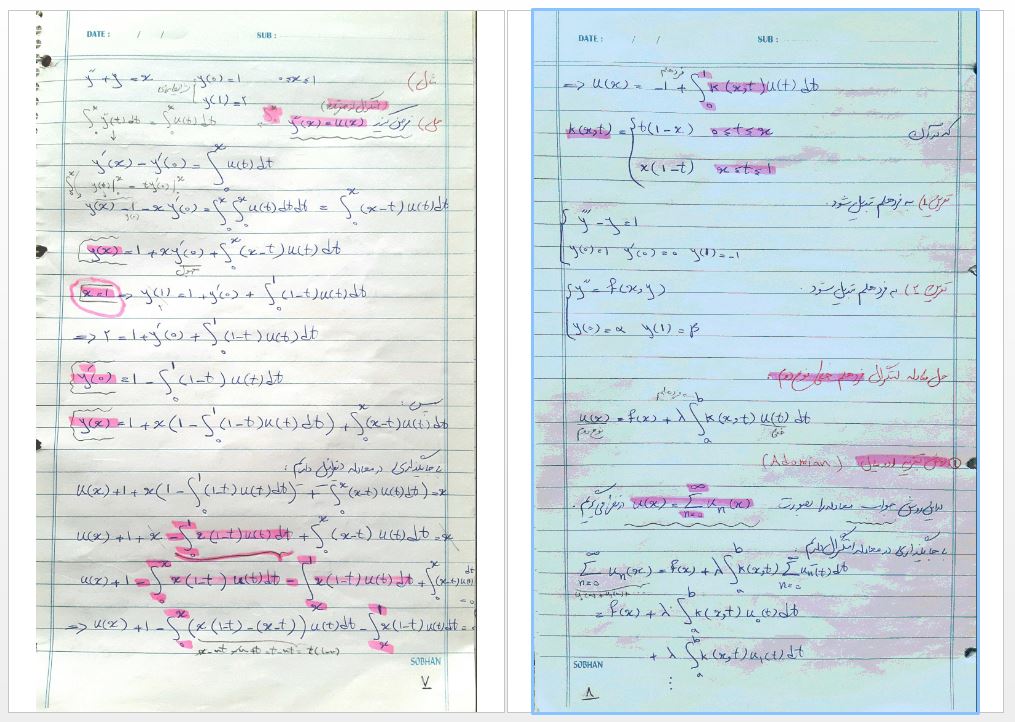 DATE: / / SUB:
مثال) y″ + y = x y(0) = 1 0≤x≤1
y(1) = ۲
حل) فرض کنید y″(x) = u(x)
∫₀ˣ y″(t) dt = ∫₀ˣ u(t) dt
y′(x) − y′(0) = ∫₀ˣ u(t) dt
y(t)|₀ˣ − t y′(0)|₀ˣ
y(x) − 1 − x y′(0) = ∫₀ˣ ∫₀ˣ u(t) dt dt = ∫₀ˣ (x−t) u(t) dt
y(0)
y(x) = 1 + x y′(0) + ∫₀ˣ (x−t) u(t) dt
مجهول
x=1 ⇒ y(1) = 1 + y′(0) + ∫₀¹ (1−t) u(t) dt
⇒ ۲ = 1 + y′(0) + ∫₀¹ (1−t) u(t) dt
y′(0) = 1 − ∫₀¹ (1−t) u(t) dt
پس:
y(x) = 1 + x (1 − ∫₀¹ (1−t) u(t) dt) + ∫₀ˣ (x−t) u(t) dt
با جایگذاری در معادله دیفرانسیل داریم:
u(x) + 1 + x (1 − ∫₀¹ (1−t) u(t) dt) + ∫₀ˣ (x−t) u(t) dt = x
u(x) + 1 + x − ∫₀¹ x(1−t) u(t) dt + ∫₀ˣ (x−t) u(t) dt = x
u(x) + 1 − ∫₀ˣ x(1−t) u(t) dt − ∫ₓ¹ x(1−t) u(t) dt + ∫₀ˣ (x−t) u(t) dt = 0
⇒ u(x) + 1 − ∫₀ˣ (x(1−t) − (x−t)) u(t) dt − ∫ₓ¹ x(1−t) u(t) dt =
SOBHAN
۷
DATE: / / SUB:
فردهلم
⇒ u(x) = −1 + ∫₀¹ k(x,t) u(t) dt
که در آن k(x,t) = { t(1−x) 0≤t≤x
x(1−t) x≤t≤1
تمرین ۱) به فردهلم تبدیل شود.
{ y‴ − y = 1
y(0)=1 y′(0)=0 y(1)=−1
تمرین ۲) به فردهلم تبدیل شود. { y″ = f(x,y)
y(0)=α y(1)=β
حل معادله انتگرال فردهلم خطی نوع دوم.
u(x) = f(x) + λ ∫ₐᵇ k(x,t) u(t) dt
نوع دوم خطی
① روش تجزیه آدومیان (Adomian)
در این روش جواب معادله را بصورت u(x) = ∑ₙ₌₀^∞ uₙ(x) در نظر می‌گیریم.
با جایگذاری در معادله انتگرال داریم:
∑ₙ₌₀^∞ uₙ(x) = f(x) + λ ∫ₐᵇ k(x,t) ∑ₙ₌₀^∞ uₙ(t) dt
= f(x) + λ ∫ₐᵇ k(x,t) u₀(t) dt
+ λ ∫ₐᵇ k(x,t) u₁(t) dt
⋮
SOBHAN
۸